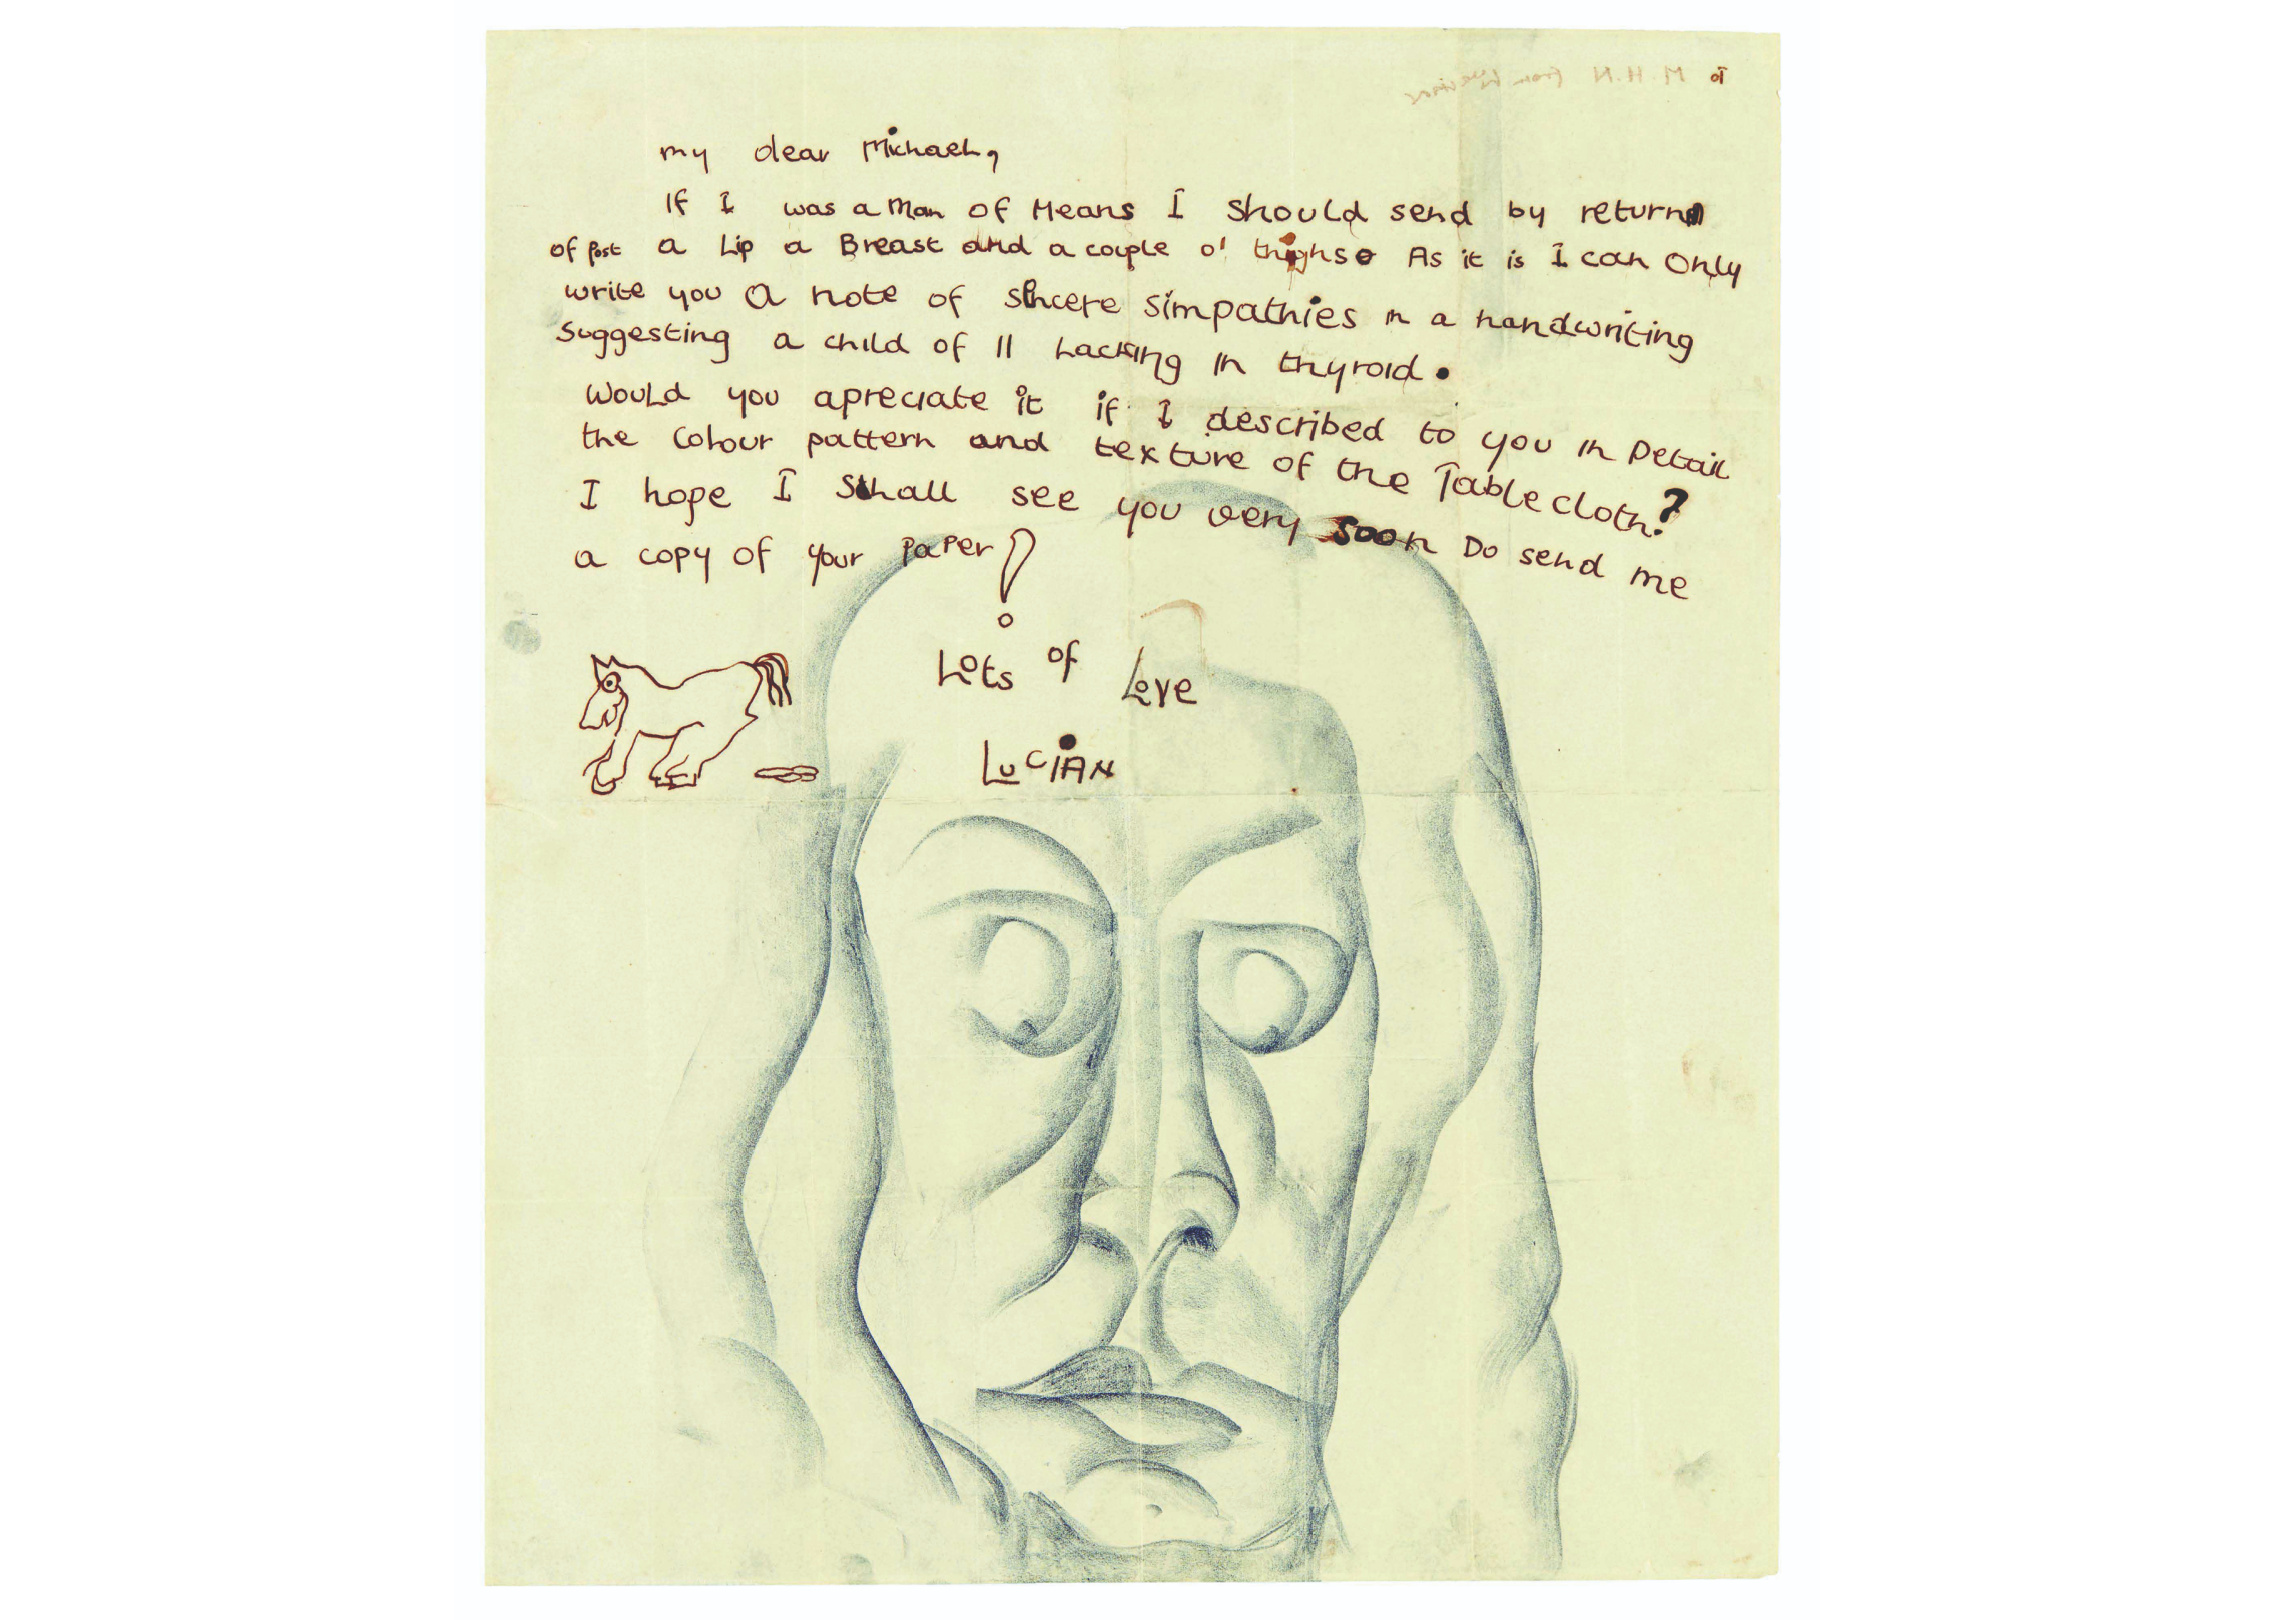 To M.H.N from Lucian
my dear Michael,
If I was a Man of Means I should send by return
of post a Lip a Breast and a couple o' thighs. As it is I can Only
write you a note of sincere simpathies in a handwriting
suggesting a child of 11 Lacking in thyroid.
Would you apreciate it if I described to you in Detail
the Colour pattern and texture of the Table cloth?
I hope I Shall see you very soon Do send me
a copy of your paper!
Lots of Love
LUCIAN